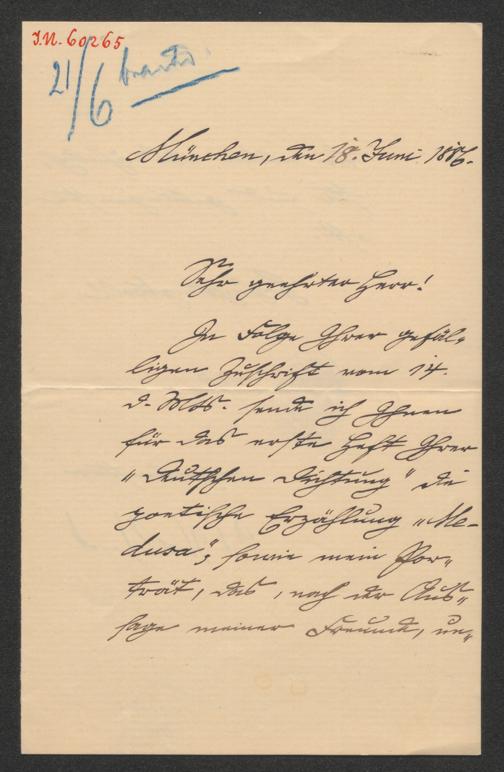 I.N. 60265
21/6
München, den 18. Juni 1886.
Sehr geehrter Herr!
In Folge Ihrer gefäl-
ligen Zuschrift vom 14.
d. Mts. sende ich Ihnen
für das erste Heft Ihrer
"Deutschen Dichtung" die
poetische Erzählung "Me-
dusa", sowie mein Por-
trät, das, nach der Aus-
sage meiner Freunde, un-